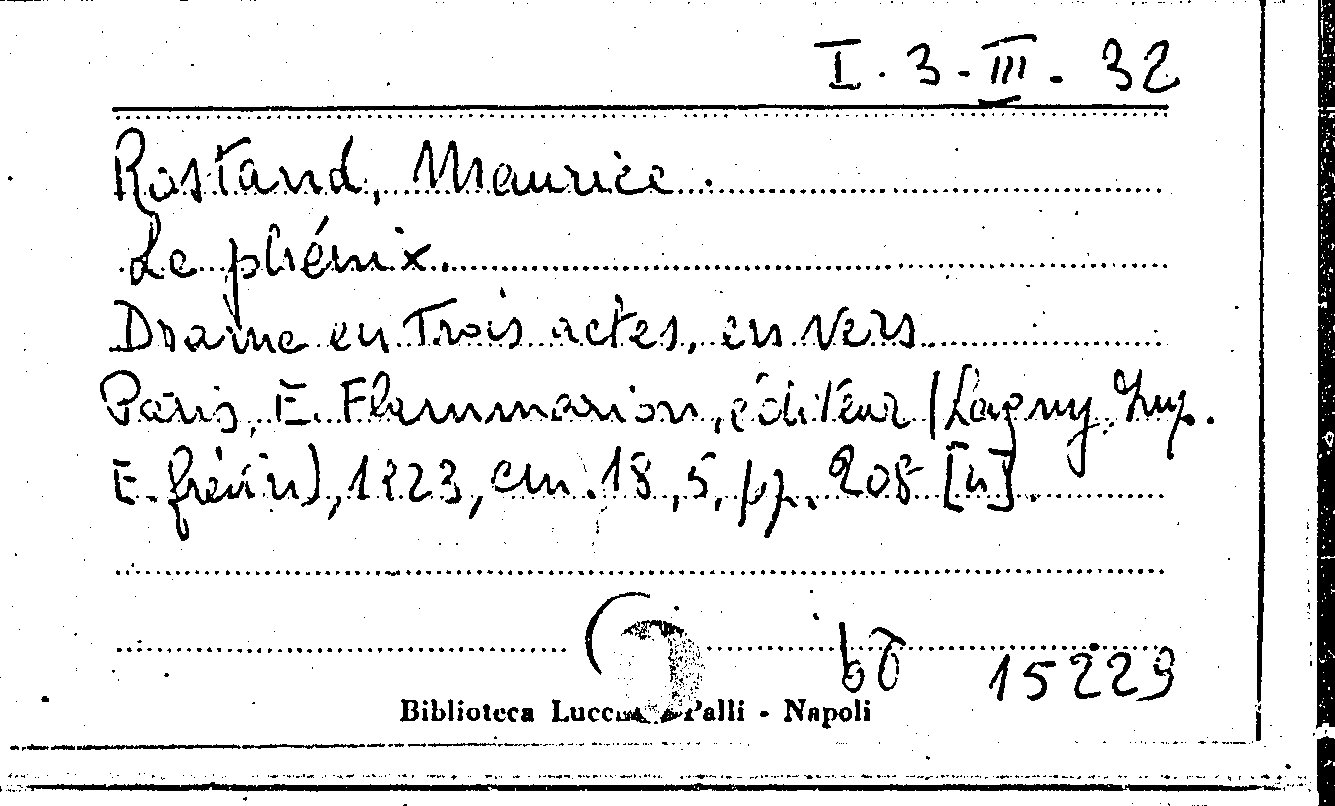 I. 3 - III. 32
Rostand, Maurice.
Le phénix.
Drame en trois actes, en vers
Paris, E. Flammarion, éditeur (Lagny, Imp.
E. Grévin), 1923, cm. 18,5, pp. 208 [4].
15229
Biblioteca Palli - Napoli